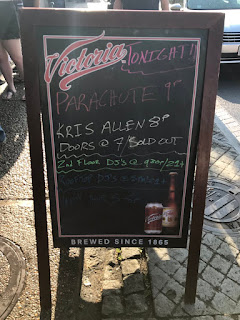 Victoria TONIGHT!
PARACHUTE 9P
KRIS ALLEN 8P
DOORS @ 7 SOLD OUT
2nd Floor DJ's @
DJ'S @
BREWED SINCE 1865